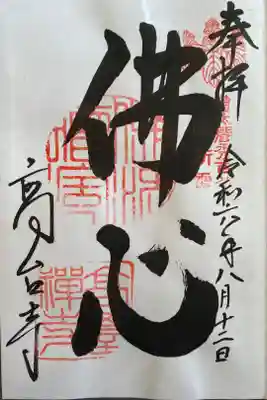 奉拝
令和六年八月十二日
佛心
高台寺